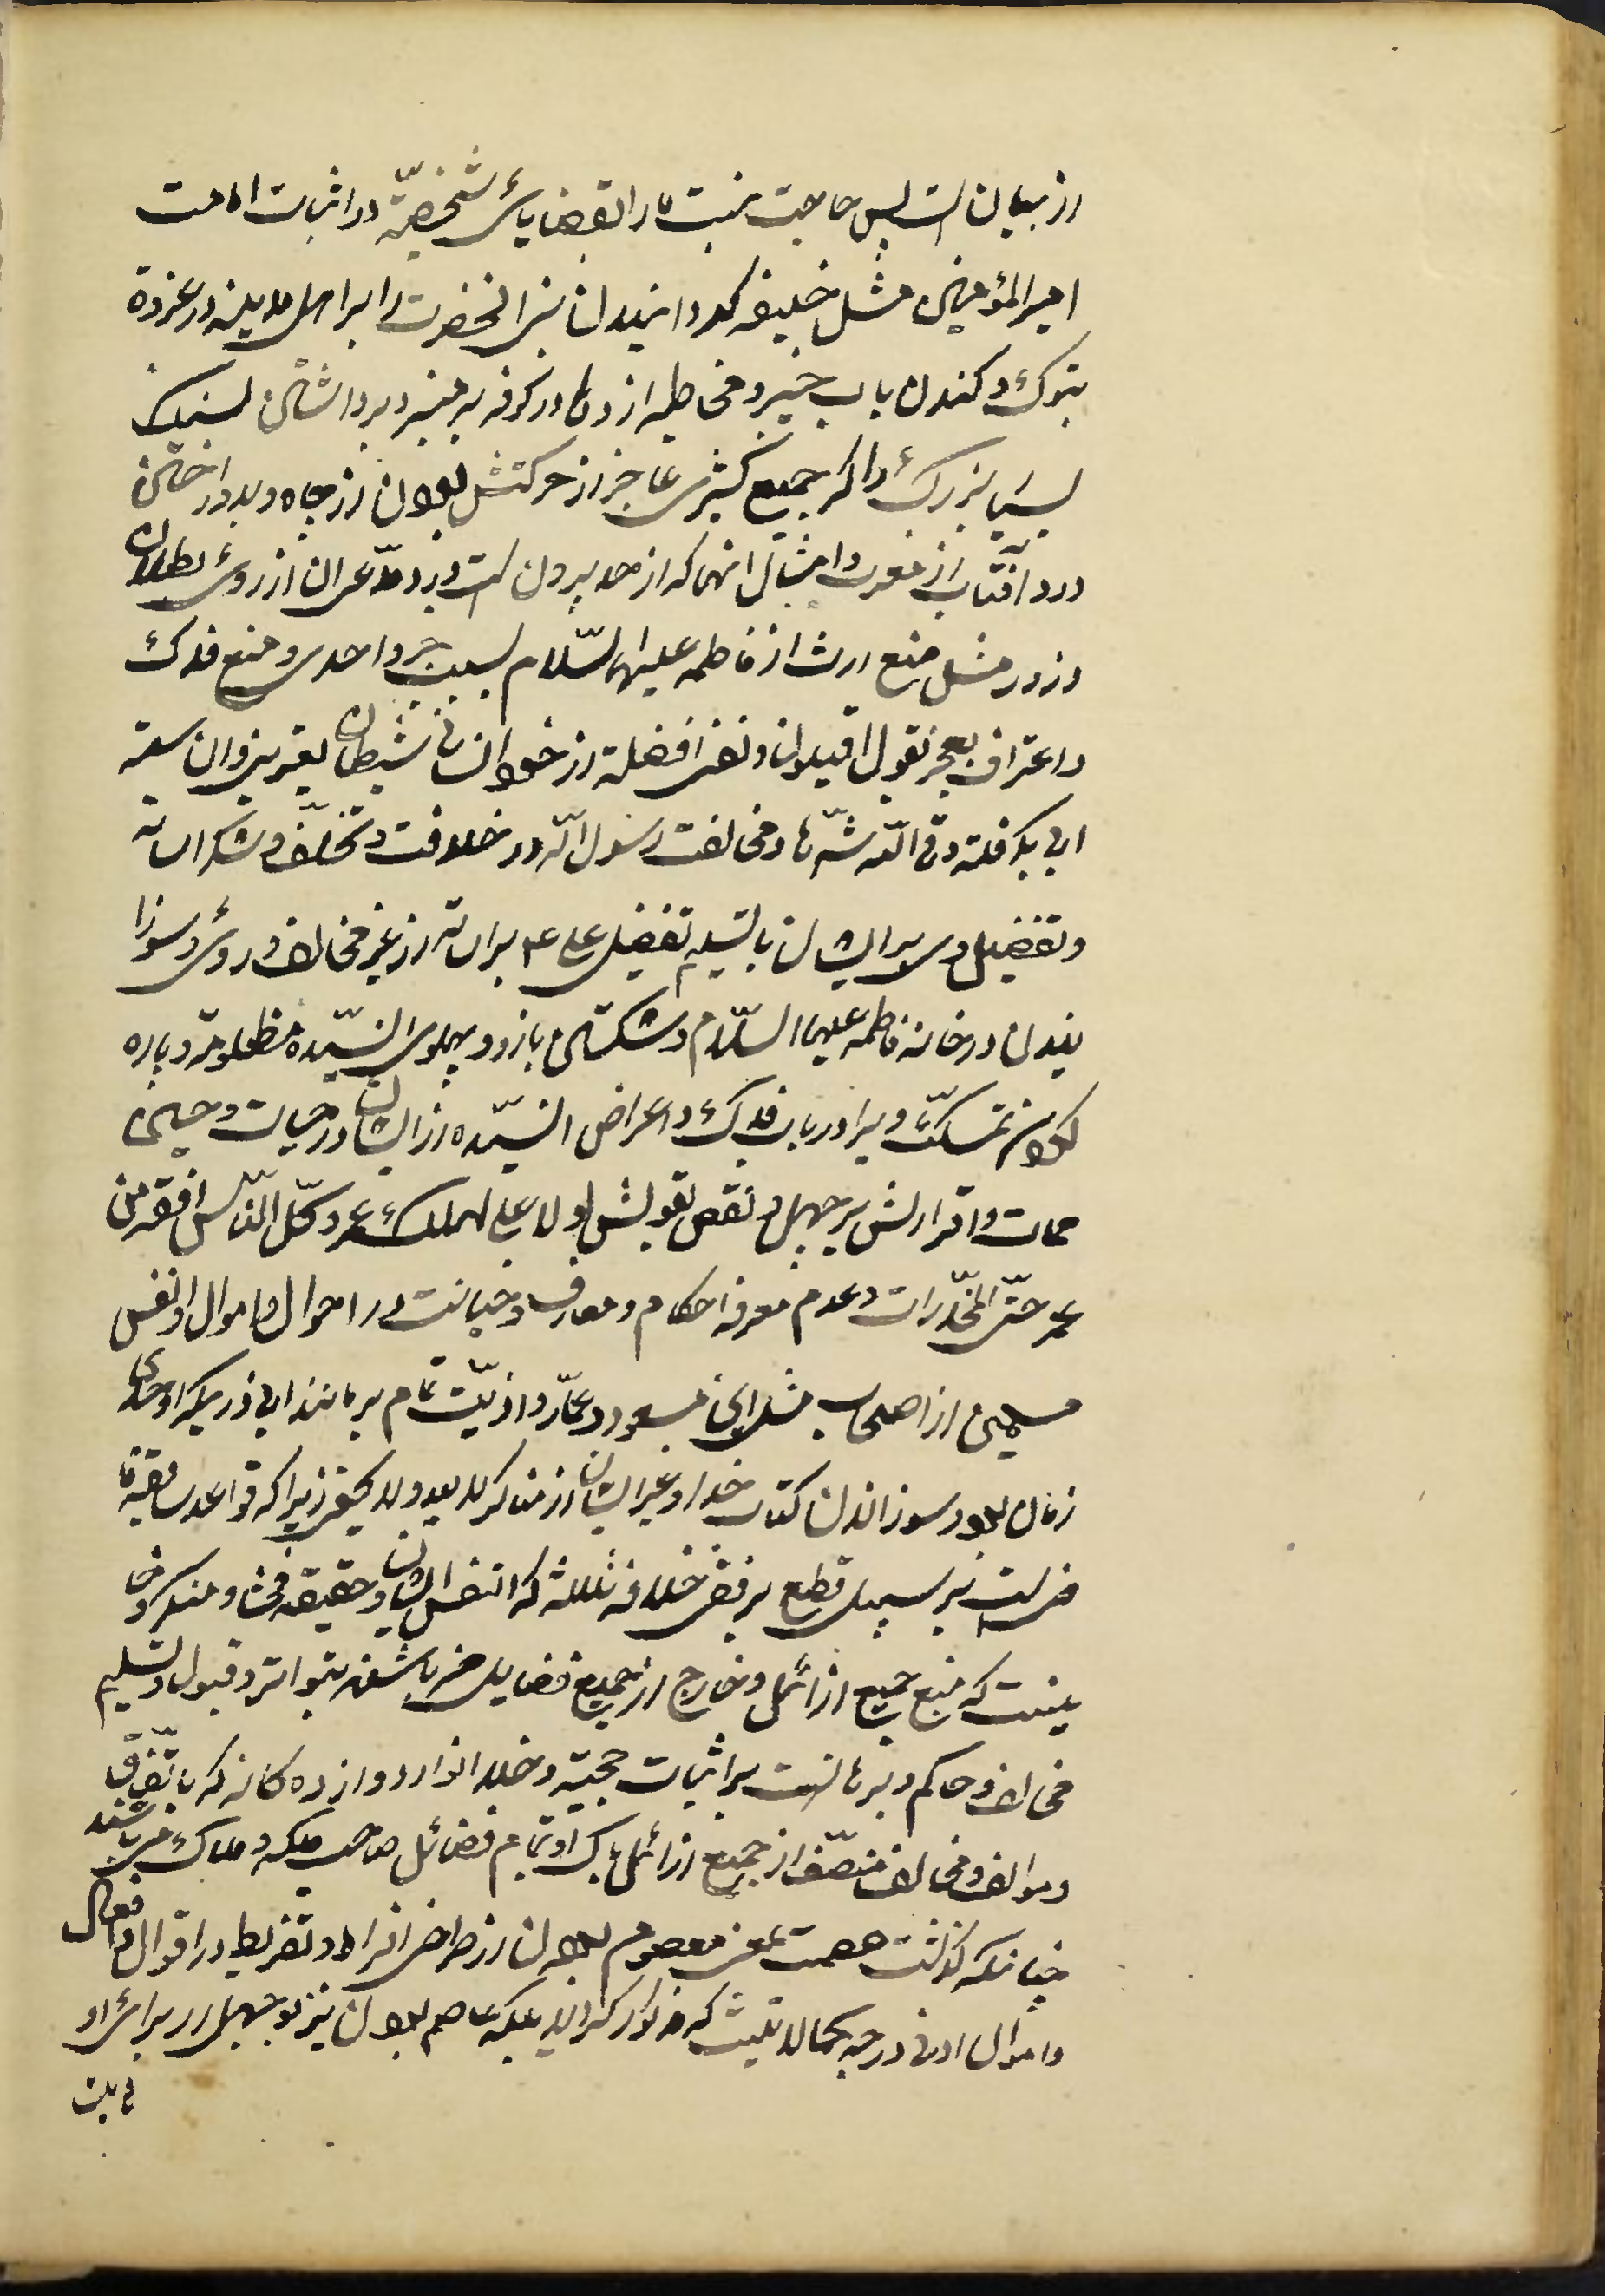 از بیان است پس حاجت نیست ما را بقضایای شخصیّه در اثبات امامت
امیر المؤمنین مثل خلیفه کردانیدان نبی انحضرت را بر اهل مدینه در غزوة
تبوک و کندن باب خیبر و مخاطبه اژدها در کوفه بر منبر و برداشتن سنک
بسیا بزرک را کر جمیع کثیری عاجز از حرکتش بودن از چاه و بدور اختن
ورد افتاب از مغرب و امثال انها که از حد بیرون است و ردّ مدّعی ان از روی بطلان
وزور مثل منع ارث از فاطمه علیها السّلام بسبب خبر واحدی و منع فدک
واعتراف بعجز بقول اقیلونی و نفی افضلیة از خود ان شیطان یعترینی و ان بیعة
ابی بکر فلتة وقی اللّه شرّها و مخالفت رسول اللّه در خلافت و تخلّف و شک اسامه
وتفضیل وی بر ایشان با تسلیم تفضیل علی ع بر اسامه از غیر مخالف و روی سوزا
نیدن در خانه فاطمه علیها السّلام و شکستن بازو و پهلوی ان سیّده مظلومة و پاره
کردن تمسکّ ویرا در باب فدک و اعراض ان سیّده از ایشان در حیات و حین
ممات و اقرارش بر جهل و نقص بقولش لولا علی لهلک عمر و کلّ النّاس افقه من
عمر حتّی المخدّرات و عدم معرفة احکام و معارف و خیانت در احوال و اموال و انفس
مسلمین از اصحاب مثل ابن مسعود و عمّار و اذیّت تمام بر مانند ابی ذر یکه اوحدی
زمان بود و سوزاندن کتاب خدا و غیر ایشان از مناکر لا یعد و لا یحصی زیرا که قواعد سابقة قا
ضی است بر سبیل قطع بر نفی خلافه ثلثه که انفس ایشان و حقیقه فحشا و منکر و خا
ینست که منبع جمیع رزائل و خارج از جمیع فضایل می باشند بتواتر و قبول و تسلیم
مخالف و حاکم و برهانست بر اثبات حجیّة و خلافة انوار دوازده کانه که باتّفاق
و موالف و مخالف متصّف از جمیع رزائل پاک و بتمام فضائل صاحب ملکه و ملاک می باشند
چنانکه کذشت عصمت بمعنی معصوم بودن از طرفی افراط و تفریط در اقوال و افعال
واموال ادنی درجه کمالاتیست که مذکور کردید بلکه عاصم بودن نیز بوجهیل ار برای او
ثابت